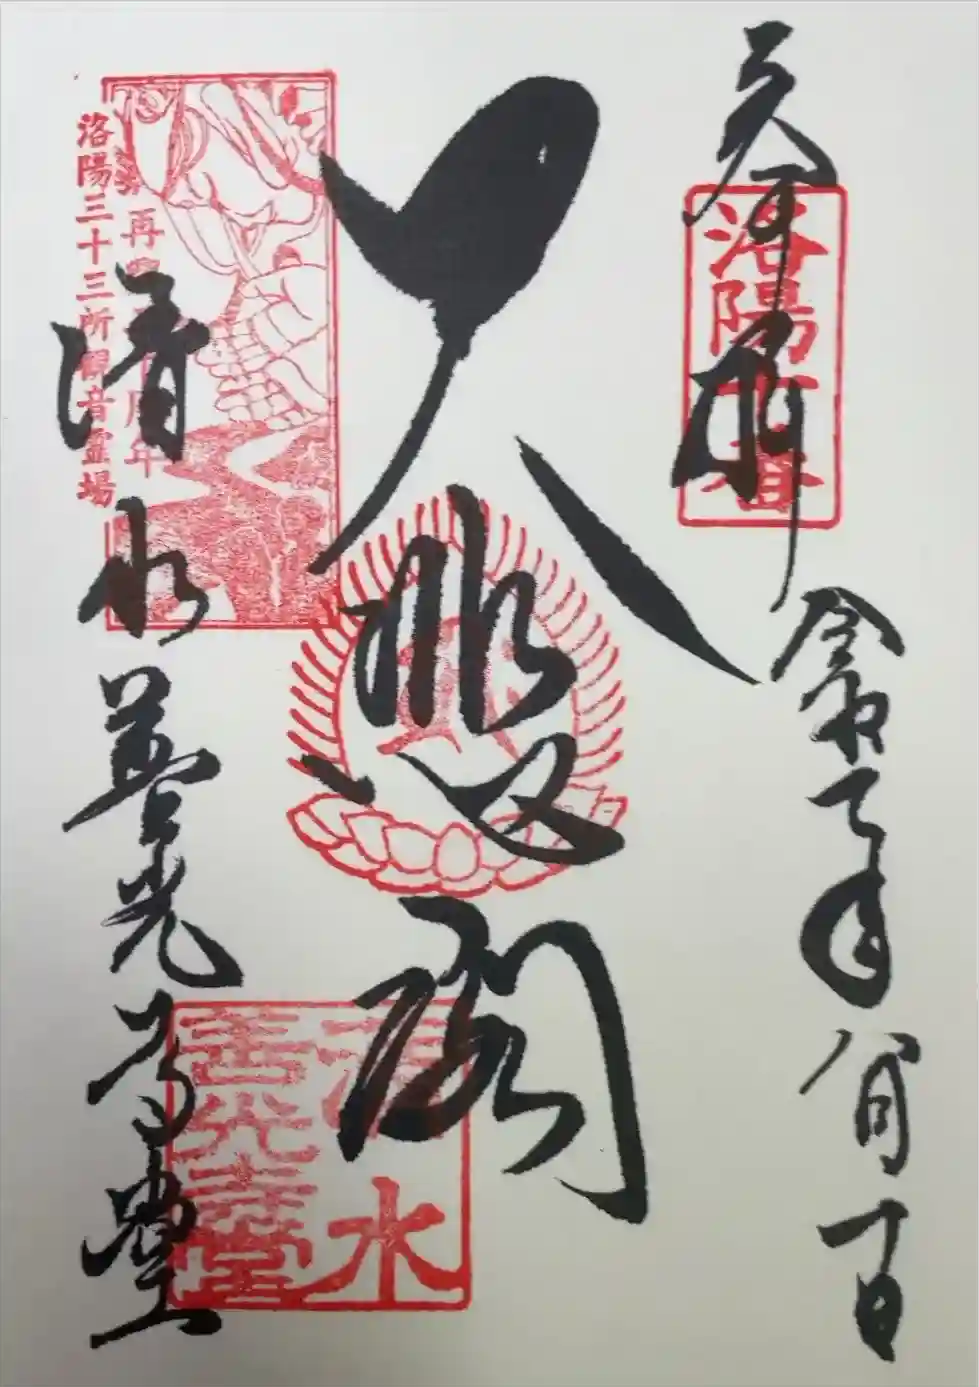 奉拝
洛陽十番
令和二年八月十日
大悲閣
再 周年
洛陽三十三所観音霊場
清水善光寺堂
清水
善光寺堂